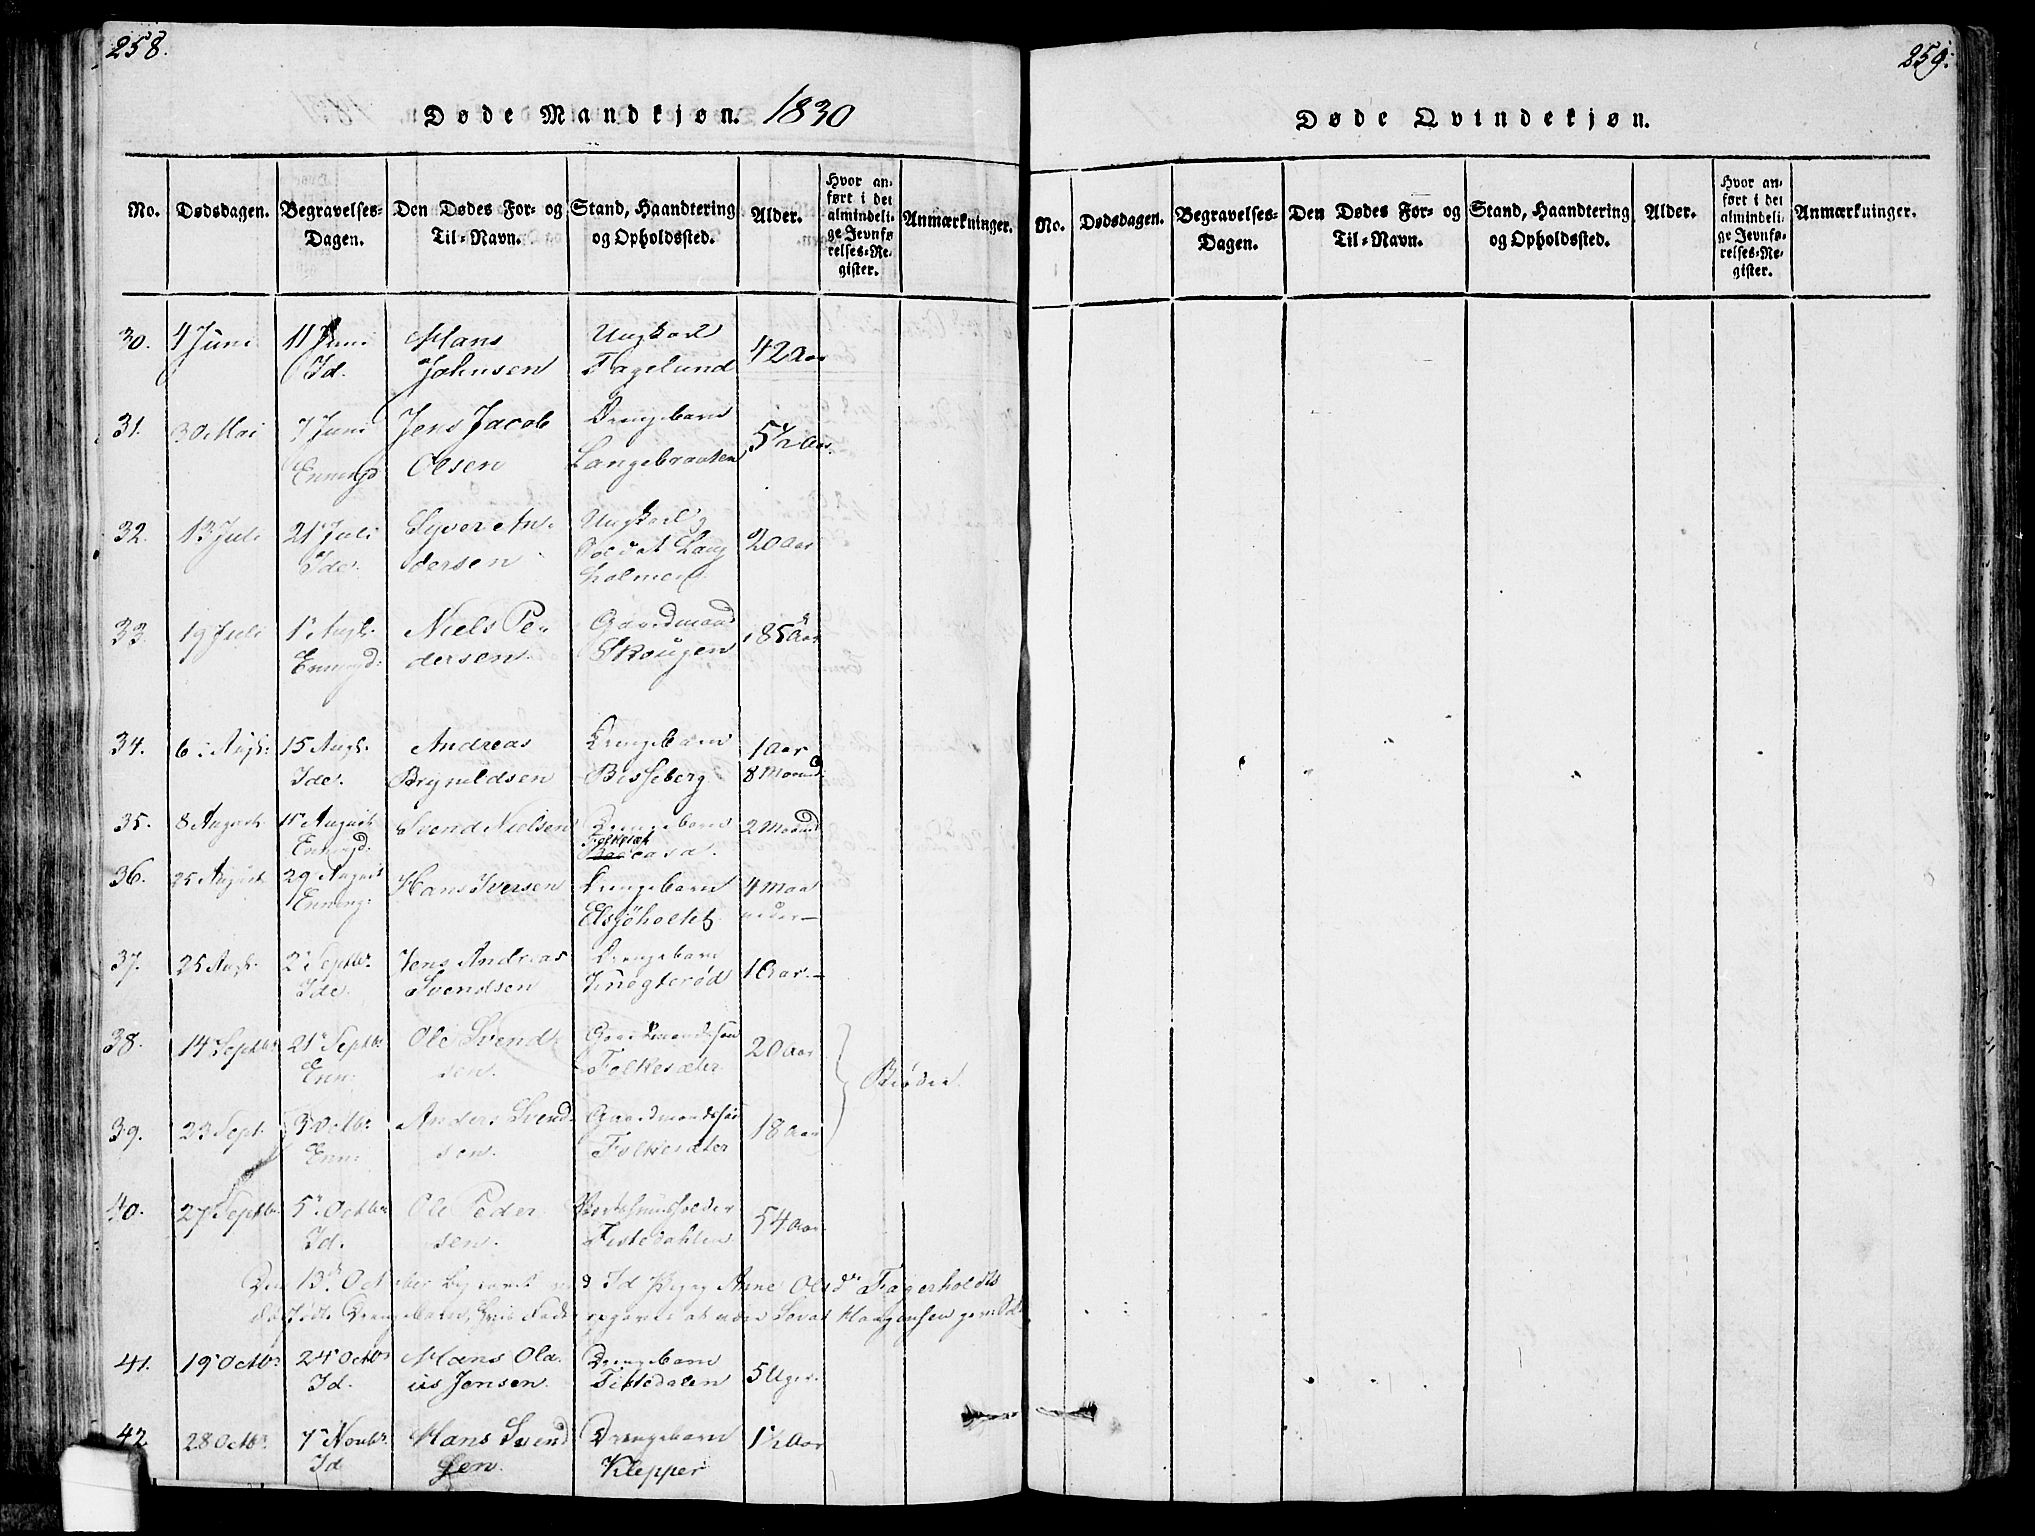 258.
Døde Mandkjøn. 1830
No. Dødsdagen. Begravelses-Dagen. Den Dødes For- og Til-Navn. Stand, Haandtering og Opholdssted. Alder. Hvor anført i det almindelige Jevnførelses-Register. Anmærkninger.
30. 4 Juni 11 Juni Hans Ungkarl 42 Aar
Id. Johnsen Fagelund
31. 30 Mai 7 Juni Jens Jacob Drengebarn 5½ Aar.
Enningd Olsen Langebraaten
32. 13 Juli 21 Juli Syver An- Ungkarl 20 Aar
Ide. dersen Soldat Lang
holmen
33. 19 Juli 1 Augt. Niels Pe- Gaardmand 85 Aar
Enningd: dersen. Skougen
34. 6 Augt: 15 Augt. Andreas Drengebarn 1 Aar
Ide. Brynildsen Bisseberg 8 Maaned
35. 8 August 15 August Svend Nielsen Drengebarn 2 Maaned
Enningd: Folkesæt
36. 25 August 29 August Hans Iversen Drengebarn 4 Maa
Enning: Elsjøholtet neder
37. 25 Augt. 2 Septbr. Jens Andreas Drengebarn 1 Aar.
Ide. Svendsen Knogterød
38. 14 Septbr 21 Septbr Ole Svend- Gaardmandssøn 20 Aar
Enn: sen. Folkesæter
Brødre.
39. 23 Sept. 3 Octbr. Anders Svend- Gaardmandssøn 18 Aar
Enn: sen. Folkesæter
40. 27 Septbr 5 Octbr Ole Peder- 54 Aar
Id. sen. Tistedahlen
Den 13 Oct Id Anne Olsdr Fagerholdts
dødfødte Drengebarn, hvis Fader Haagensen
41. 19 Octbr. 24 Octbr Hans Ola- Drengebarn 5 Uger.
Id. us Jensen. Tistedalen
42. 28 Octbr. 7 Novbr. Hans Svend Drengebarn 1½ Aar
Id sen. Klepper
259.
Døde Qvindekjøn.
No. Dødsdagen. Begravelses-Dagen. Den Dødes For- og Til-Navn. Stand, Haandtering og Opholdssted. Alder. Hvor anført i det almindelige Jevnførelses-Register. Anmærkninger.